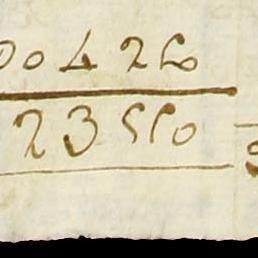 0042
23550